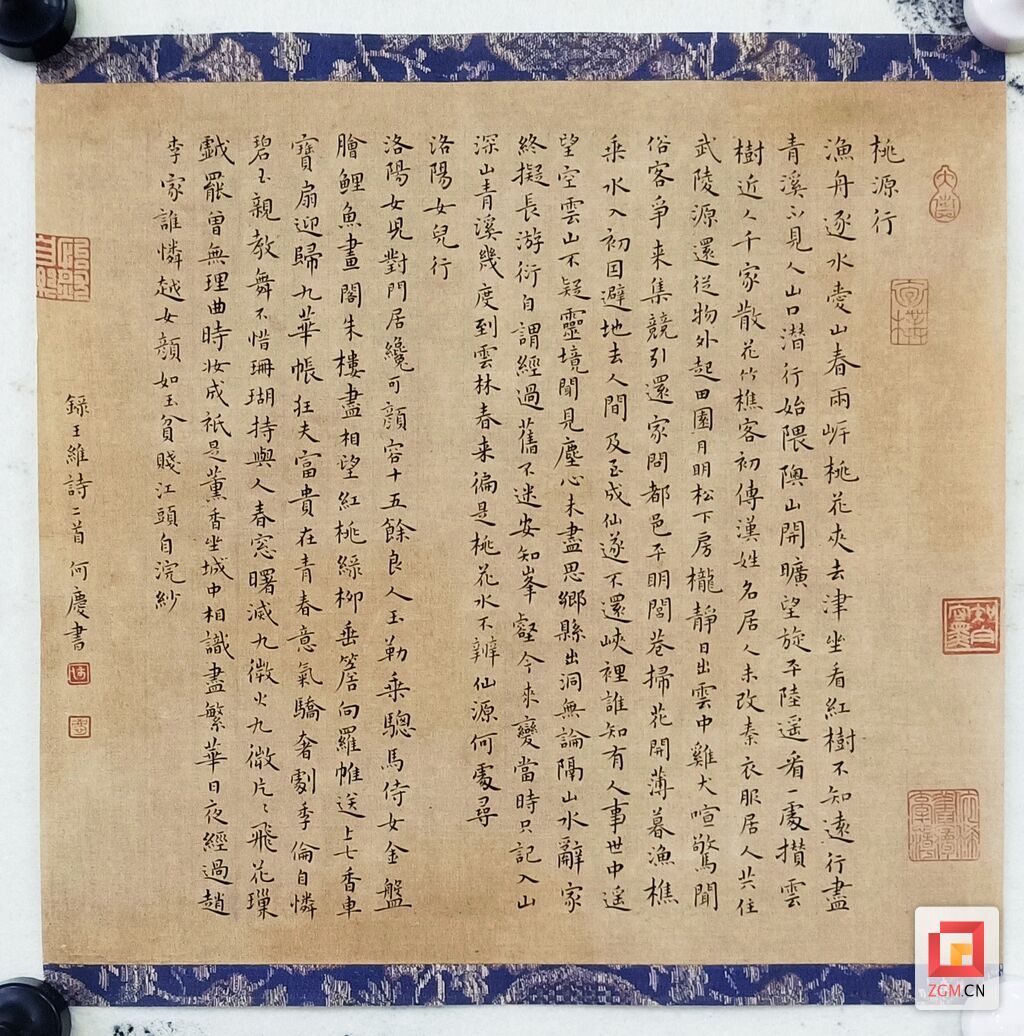 桃源行
漁舟逐水愛山春兩岍桃花夾去津坐看紅樹不知遠行盡
青溪不見人山口潛行始隈隩山開曠望旋平陸遥看一處攢雲
樹近人千家散花竹樵客初傳漢姓名居人未改秦衣服居人共住
武陵源還從物外起田園月明松下房櫳靜日出雲中雞犬喧驚聞
俗客爭来集競引還家問都邑平明閭巷掃花開薄暮漁樵
乘水入初因避地去人間及至成仙遂不還峽裡誰知有人事世中遥
望空雲山不疑靈境聞見塵心未盡思鄉縣出洞無論隔山水辭家
終擬長游衍自謂經過舊不迷安知峯壑今來變當時只記入山
深山青溪幾度到雲林春来徧是桃花水不辨仙源何處尋
洛陽女兒行
洛陽女児對門居纔可顔容十五餘良人玉勒乗驄馬侍女金盤
膾鯉魚畫閣朱樓盡相望紅桃綠柳垂簷向羅帷送上七香車
寶扇迎歸九華帳狂夫富貴在青春意氣驕奢劇季倫自憐
碧玉親教舞不惜珊瑚持與人春窓曙滅九微火九微片〻飛花璅
戯罷曾無理曲時妝成祇是薰香坐城中相識盡繁華日夜經過趙
李家誰憐越女顔如玉貧賤江頭自浣紗
録王維詩二首 何慶書
ZGM.CN